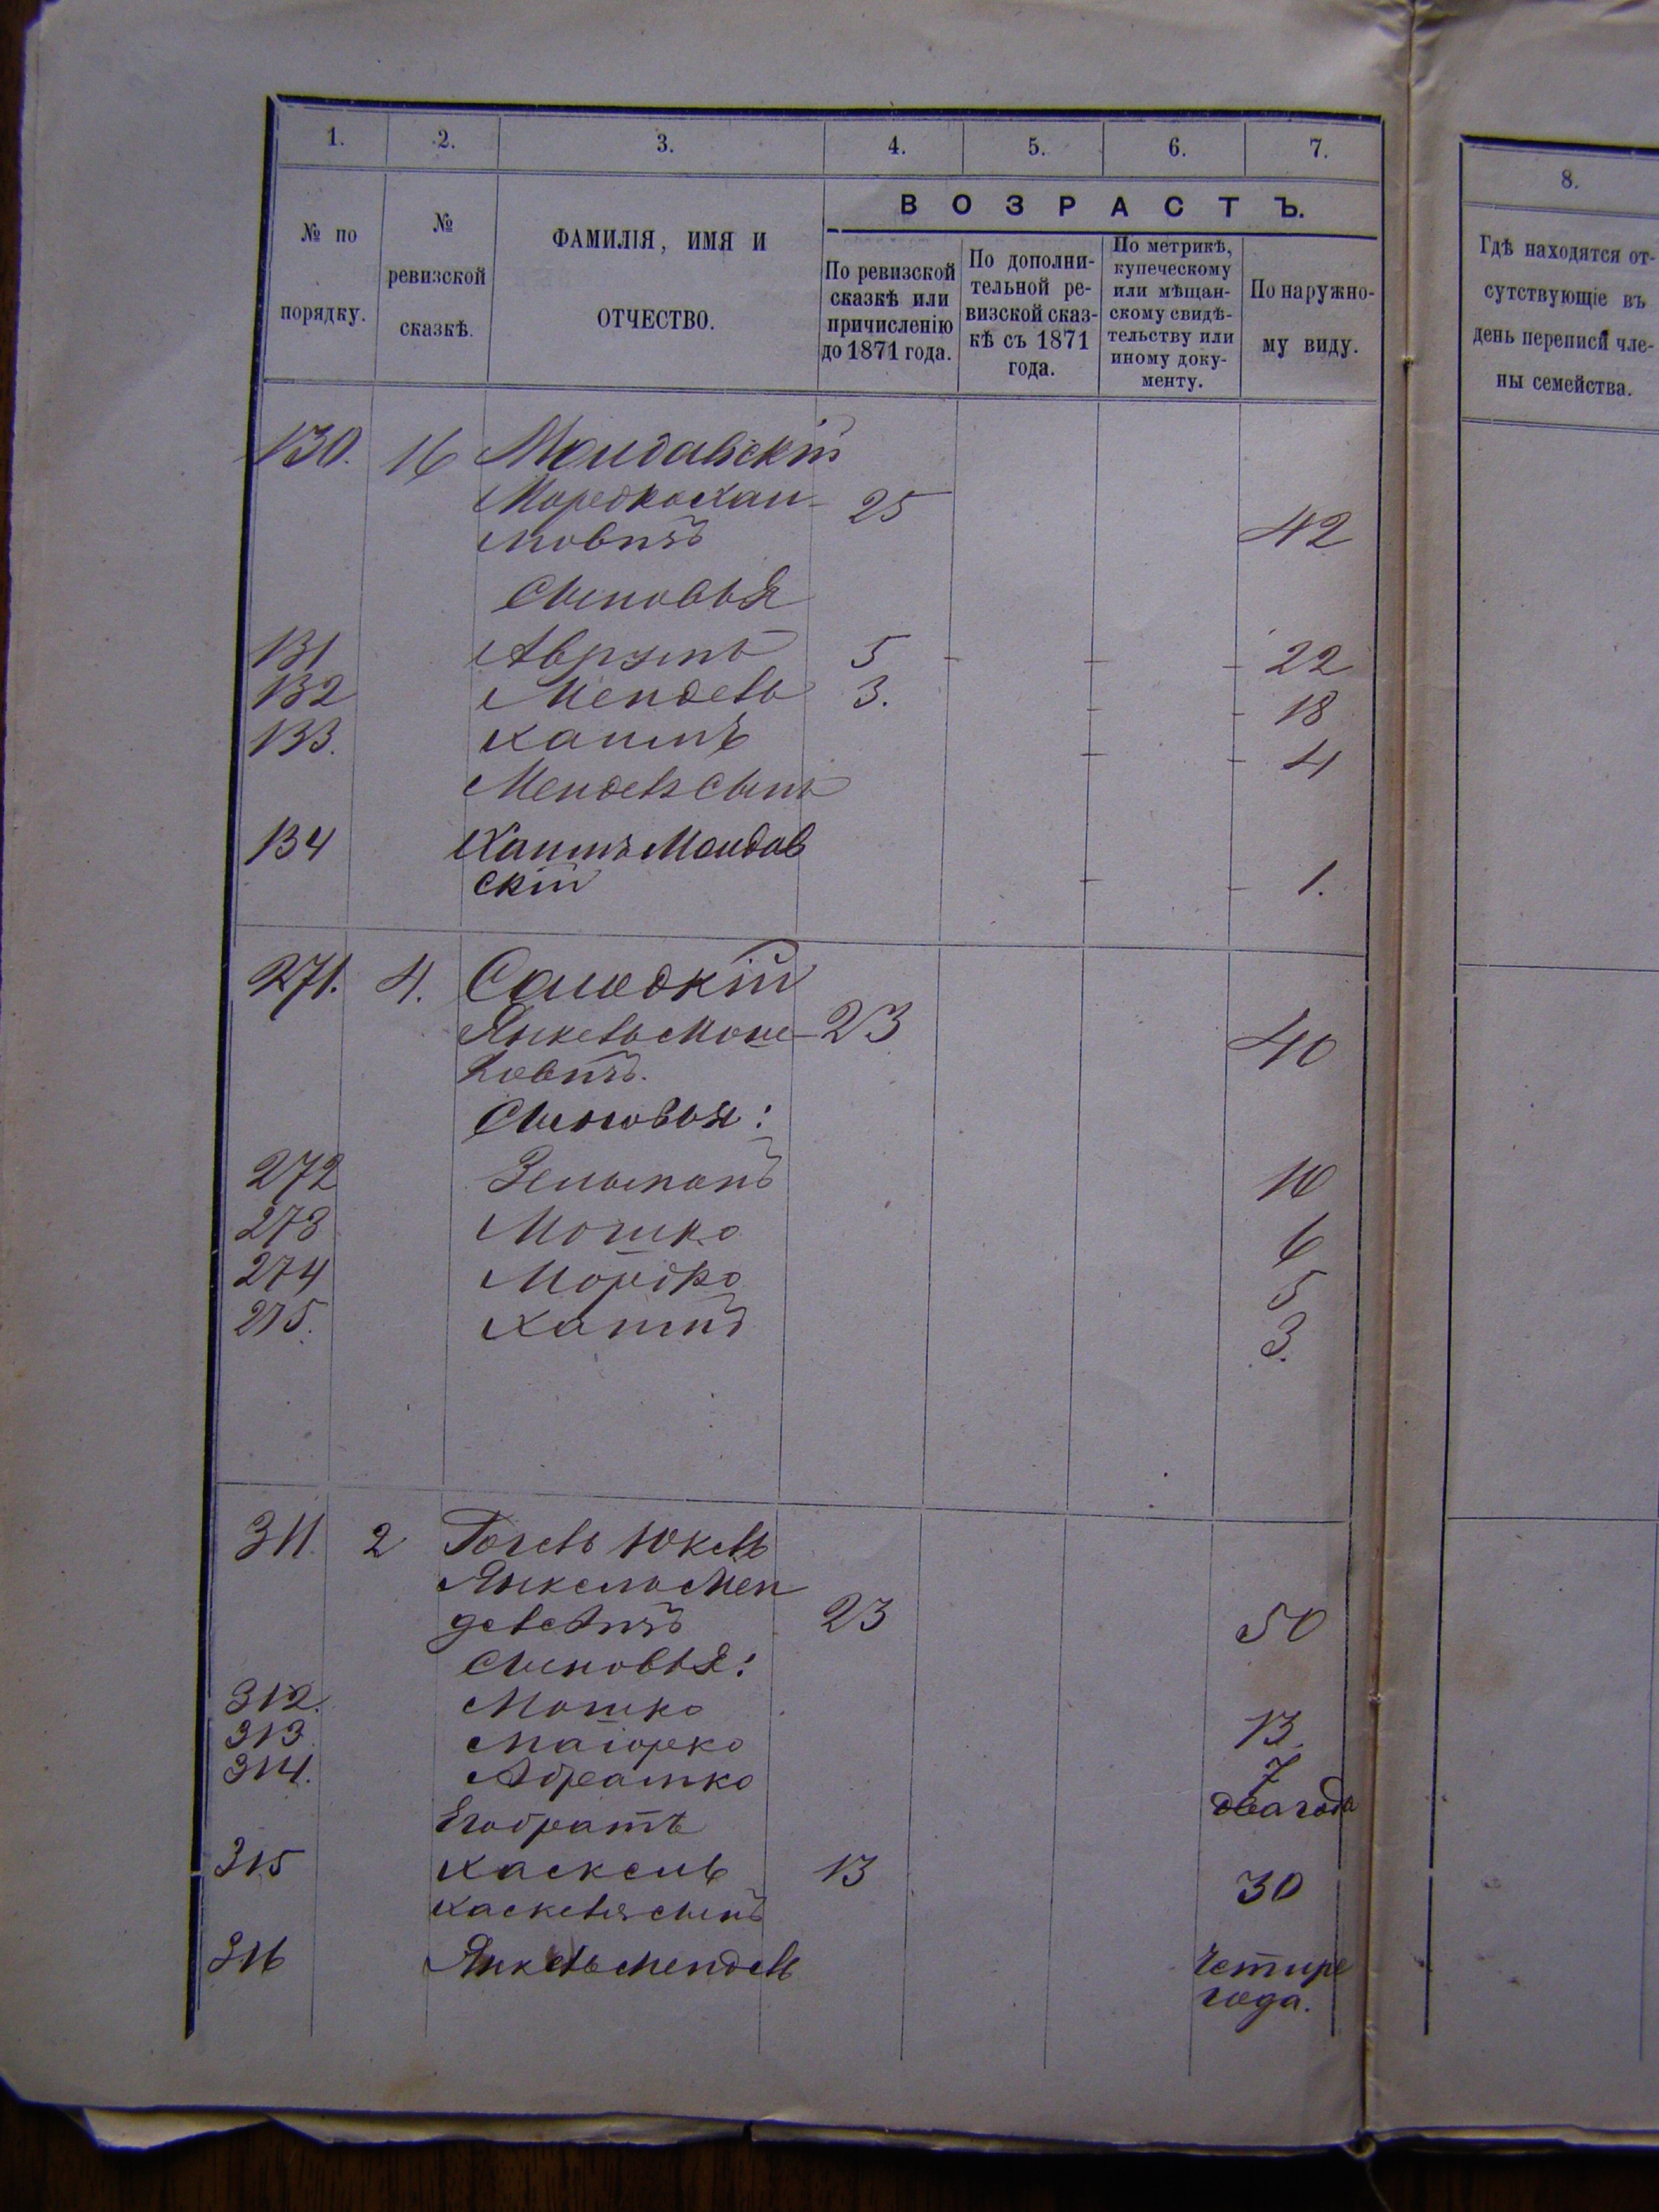 1. 2. 3. 4. 5. 6. 7.
№ по порядку.
№ ревизской сказкѣ.
ФАМИЛІЯ, ИМЯ И ОТЧЕСТВО.
ВОЗРАСТЪ.
По ревизской
сказкѣ или
причисленію
до 1871 года.
По дополни-
тельной ре-
визской сказ-
кѣ съ 1871
года.
По метрикѣ,
купеческому
или мѣщан-
скому свидѣ-
тельству или
иному доку-
менту.
По наружно-
му виду.
130. 16 Молдавскій
Мордко Хаи- 25 42
мовичъ
Сыновья
131 Аврумъ 5 - - - 22
132 Мендель 3. - - 18
133. Хаимъ - - 4
Менделя сынъ
134 Хаимъ Молдав
скій - - 1.
271. 4. Солодкій
Янкель Моше- 23 40
ковичъ.
Сыновья:
272 Зельманъ 10
273 Мошко 6
274 Мордко 5
275. Хаимъ 3.
311. 2 Гогель Юкель
Янкель Мен
делевичъ 23 50
Сыновья:
312. Мошко 13
313. 7
314. Абрамко два года
Его братъ
315 Хаскель 13 30
Хаскеля сынъ
316 Янкель Мендель Четире
года.
8.
Гдѣ находятся от-
сутствующіе въ
день переписи чле-
ны семейства.